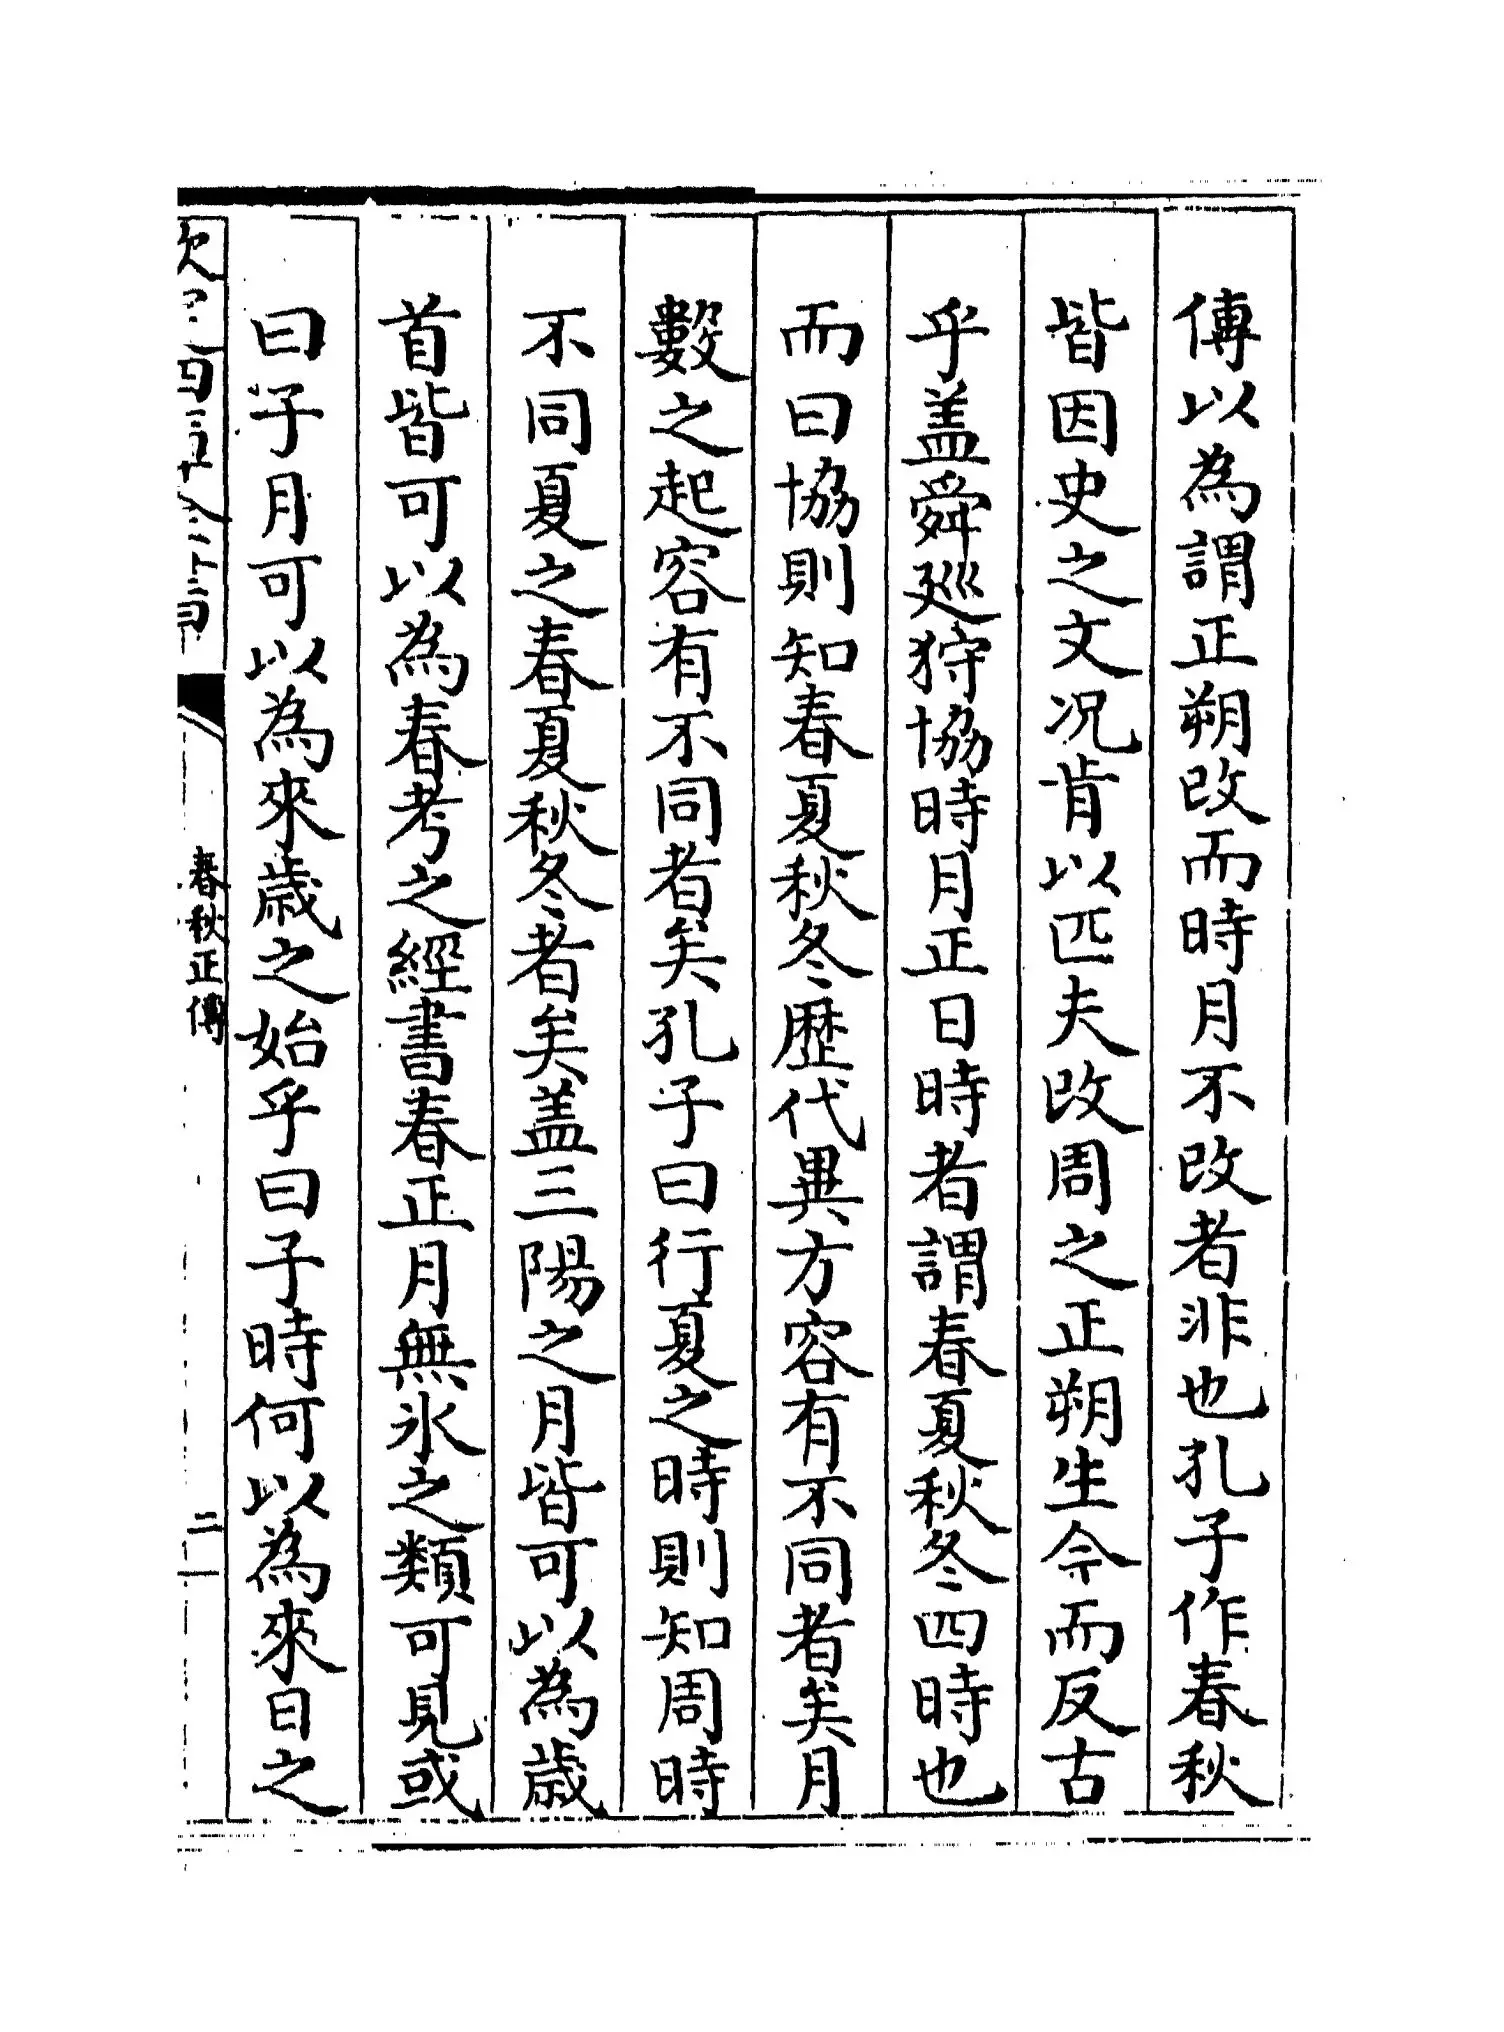 傳以為謂正朔改而時月不改者非也孔子作春秋
皆因史之文况肯以匹夫改周之正朔生今而反古
乎盖舜廵狩協時月正日時者謂春夏秋冬四時也
而曰協則知春夏秋冬歴代異方容有不同者矣月
數之起容有不同者矣孔子曰行夏之時則知周時
不同夏之春夏秋冬者矣盖三陽之月皆可以為歳
首皆可以為春考之經書春正月無氷之類可見或
曰子月可以為來歳之始乎曰子時何以為來日之
春秋正傳
二